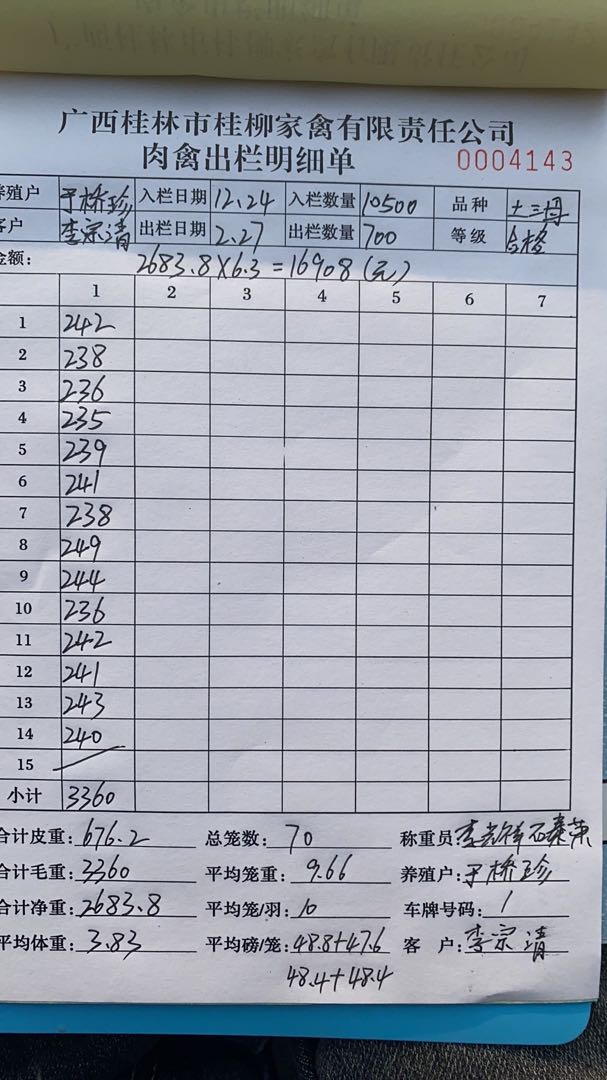 广西桂林市桂柳家禽有限责任公司
肉禽出栏明细单 0004143
养殖户 于桥珍 入栏日期 12.24 入栏数量 10500 品种 土三号
客户 李宗清 出栏日期 2.27 出栏数量 700 等级 合格
金额: 2683.8×6.3=16908(元)
1 2 3 4 5 6 7
1 242
2 238
3 236
4 235
5 239
6 241
7 238
8 249
9 244
10 236
11 242
12 241
13 243
14 240
15
小计 3360
合计皮重: 676.2 总笼数: 70 称重员:
合计毛重: 3360 平均笼重: 9.66 养殖户: 于桥珍
合计净重: 2683.8 平均笼/羽: 10 车牌号码: 1
平均体重: 3.83 平均磅/笼: 48.8+47.6 客户: 李宗清
48.4+48.4